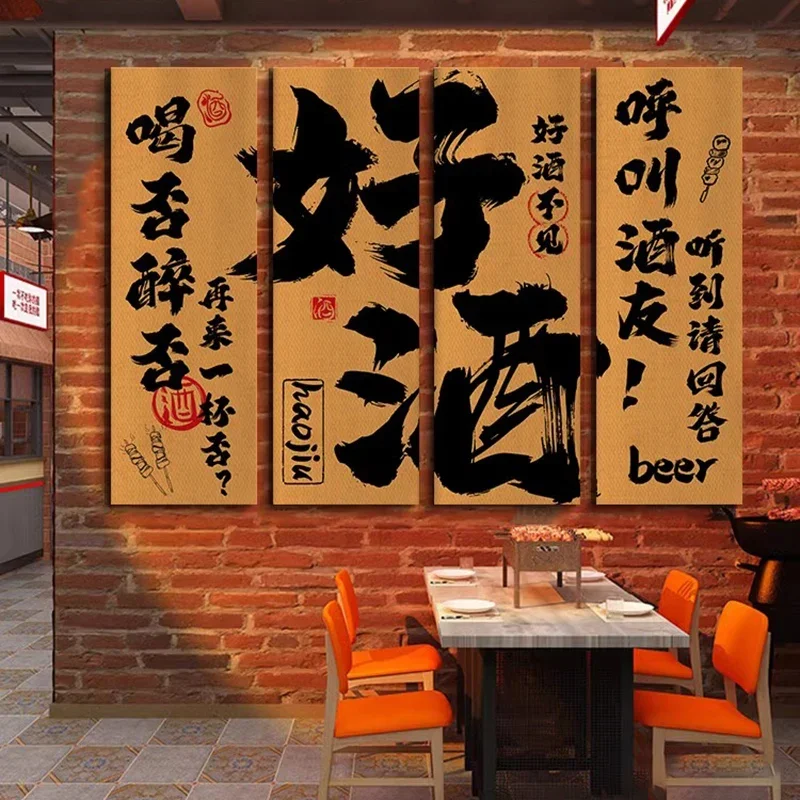 喝否醉否
再来一杯否？
酒
酒
好酒
酒
haojiu
好酒不见
呼叫酒友！
听到请回答
beer